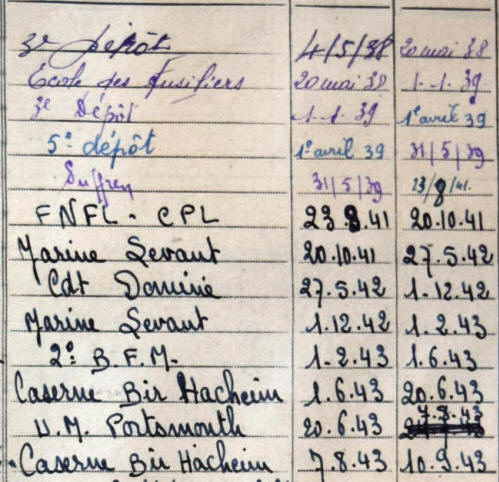 3e Dépôt 4/5/38 20 mai 38
École des Fusiliers 20 mai 38 1.1.39
3e Dépôt 1.1.39 1e avril 39
5e dépôt 1e avril 39 31/5/39
Suffren 31/5/39 23/8/41.
FNFL - CPL 23.8.41 20.10.41
Marine Levant 20.10.41 27.5.42
Cdt Dominé 27.5.42 1.12.42
Marine Levant 1.12.42 1.2.43
2e B.F.M. 1.2.43 1.6.43
Caserne Bir Hacheim 1.6.43 20.6.43
U.M. Portsmouth 20.6.43 7.8.43
Caserne Bir Hacheim 7.8.43 10.9.43